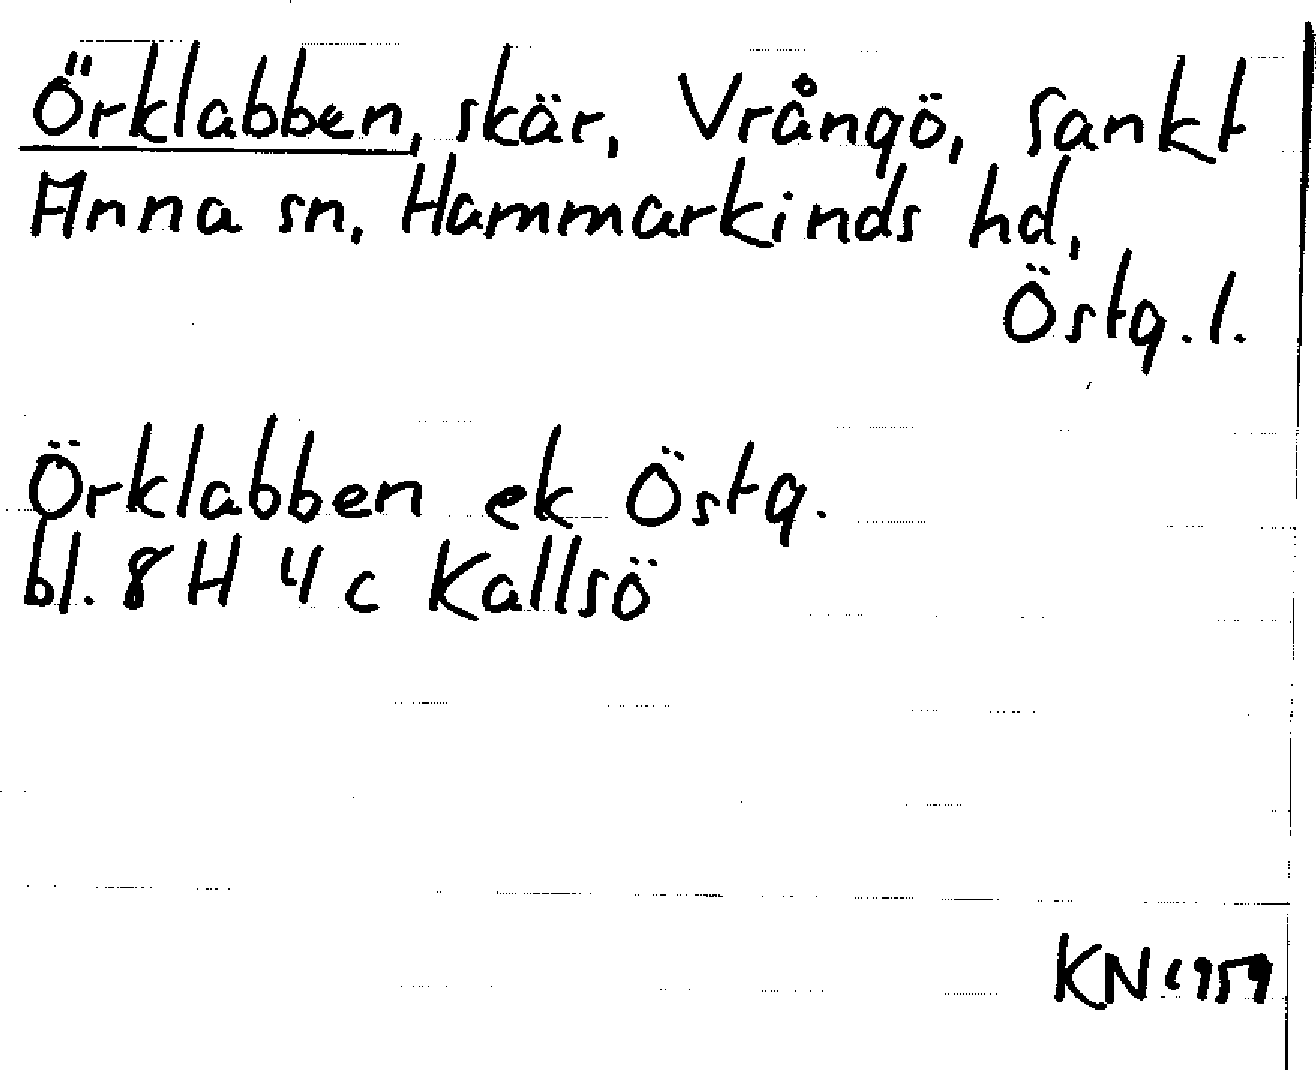 Örklabben, skär, Vrångö, Sankt
Anna sn, Hammarkinds hd,
Östg. l.
Örklabben ek Östg.
bl. 8 H 4 c Kallsö
KN 1959